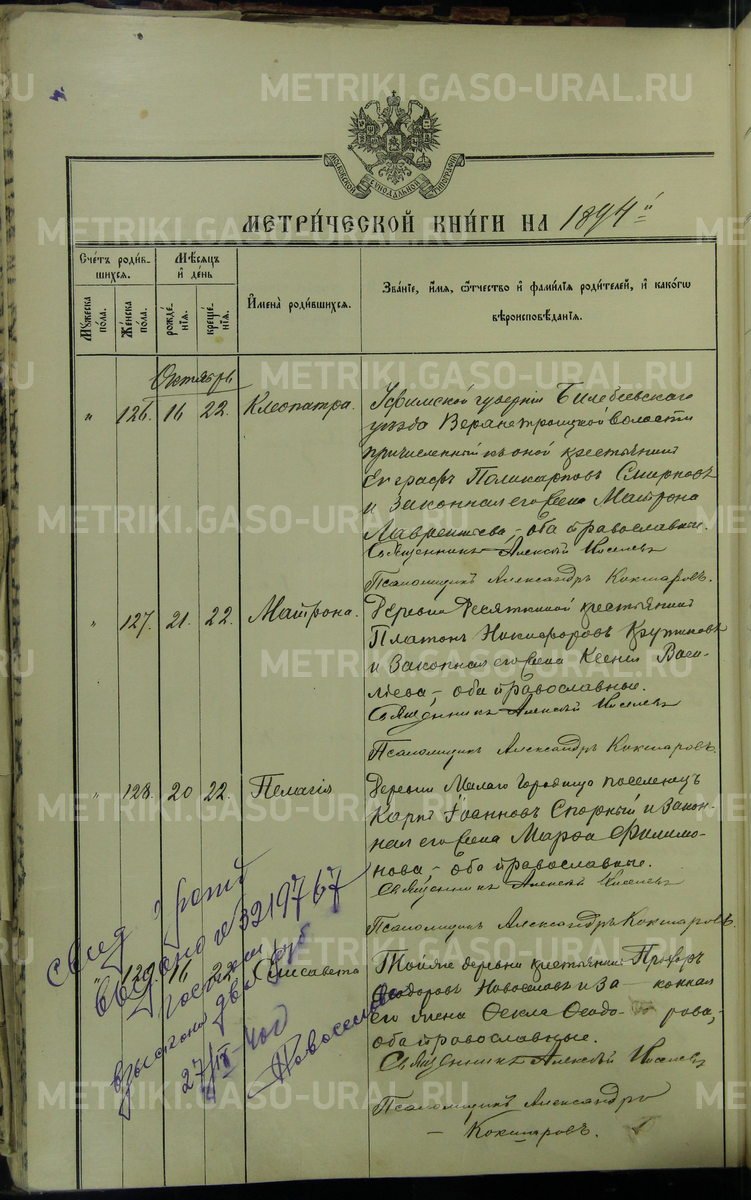 METRIKI.GASO-URAL.RU
МОСКОВСКОЙ СѴНОДАЛЬНОЙ ТИПОГРАФІИ
МЕТРИ́ЧЕСКОЙ КНИ́ГИ НА 1894
Сче́тъ роди́вшихся.
Му́жеска по́ла.
Же́нска по́ла.
Мѣ́сяцъ и҆ де́нь
рожде́нїя.
креще́нїя.
И҆мена̀ роди́вшихся.
Зва́нїе, и҆́мя, ѻ҆́тчество и҆ фами́лїя роди́телей, и҆ како́гѡ вѣроисповѣ́данїя.
Октябрь
" 126. 16 22. Клеопатра.
Уфимской губерніи Белебеевскаго
уѣзда Верхнетроицкой волости
причисленный къ оной крестьянинъ
Евграфъ Поликарповъ Смирновъ
и законная его жена Матрона
Лаврентьева, оба православные.
Священникъ Алексѣй Киселевъ
Псаломщикъ Александръ Кокшаровъ.
" 127. 21. 22. Матрона.
Деревни Десяткиной крестьянинъ
Платонъ Никифоровъ Крутиковъ
и законная его жена Ксенія Васи-
льева, оба православные.
Священникъ Алексѣй Киселевъ
Псаломщикъ Александръ Кокшаровъ.
" 128. 20 22. Пелагія
Деревни Малаго Городища поселенецъ
Карпъ Іоанновъ Спорный и закон-
ная его жена Марѳа Филимо-
нова, оба православные.
Священникъ Алексѣй Киселевъ
Псаломщикъ Александръ Кокшаровъ.
" 129. 16 22. Елисавета
Тойже деревни крестьянинъ Прохоръ
Ѳеодоровъ Новоселовъ и за конная
его жена Ѳекла Ѳеодо рова,
оба православные.
Священникъ Алексѣй Киселевъ
Псаломщикъ Александръ
Кокшаровъ.
свид о рожд
выдано № 3219767
взыскана два руб
27/IX-40г
Новоселова